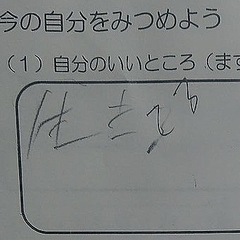 今の自分をみつめよう
(1)自分のいいところ(ます
生きてる